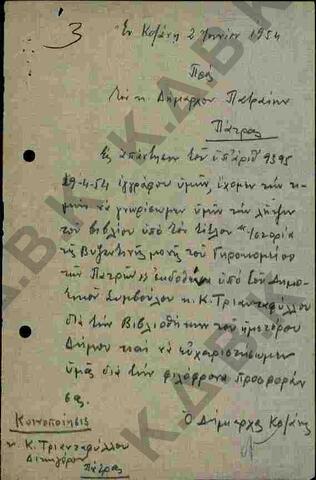 3
Ἐν Κοζάνῃ 2 Ἰουνίου 1954
Πρός
Τὸν κ. Δήμαρχον Πατραίων
Πάτρας
Εἰς ἀπάντησιν τοῦ ὑπ' ἀριθ. 9395
29-4-54 ἐγγράφου ὑμῶν, ἔχομεν τὴν τι-
μὴν νὰ γνωρίσωμεν ὑμῖν τὴν λῆψιν
τοῦ βιβλίου ὑπὸ τὸν τίτλον «Ἱστορία
τῆς Βυζαντινῆς μονῆς τοῦ Γηροκομείου
τῶν Πατρῶν» ἐκδοθὲν ὑπὸ τοῦ Δημο-
τικοῦ Συμβούλου κ. Κ. Τριανταφύλλου
διὰ τὴν Βιβλιοθήκην τοῦ ἡμετέρου
Δήμου καὶ νὰ εὐχαριστήσωμεν
ὑμᾶς διὰ τὴν φιλόφρονα προσφοράν
σας.
Ὁ Δήμαρχος Κοζάνης
Κοινοποίησις
κ. Κ. Τριανταφύλλου
Δικηγόρον
Πάτρας